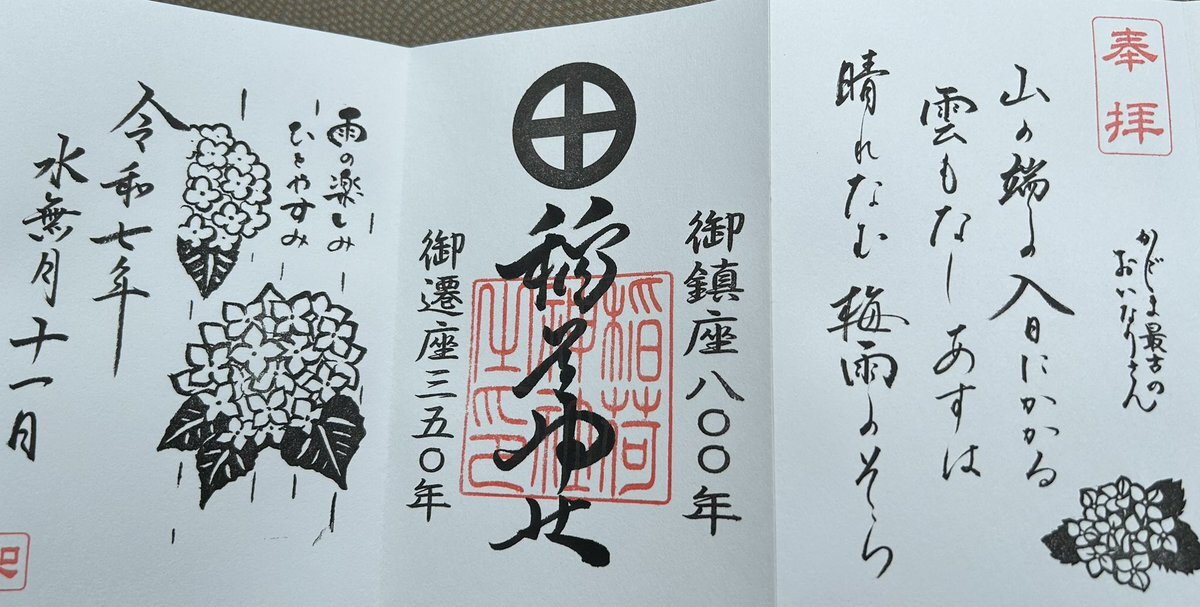 奉拝
かごしま最古の
おいなりさん
山の端の入日にかかる
雲もなし あすは
晴れなむ梅雨のそら
御鎮座八〇〇年
稲荷神社
稲荷
神社
之印
御遷座三五〇年
雨の楽しみ
ひとやすみ
令和七年
水無月十一日